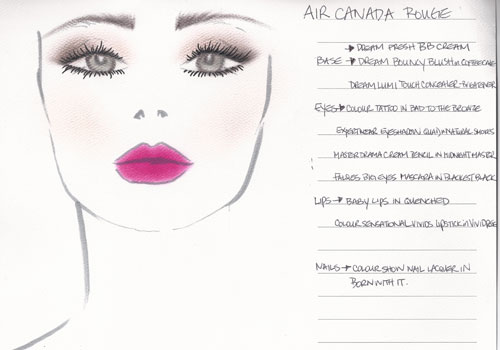 AIR CANADA ROUGE
→ DREAM FRESH BB CREAM
BASE → DREAM BOUNCY BLUSH in COFFEE CAKE
DREAM LUMI TOUCH CONCEALER
EYES → COLOUR TATTOO IN BAD TO THE BRONZE
EXPERTWEAR EYESHADOW QUAD in NATURAL SMOKES
MASTER DRAMA CREAM PENCIL IN MIDNIGHT MASTER
FALSIES BIG EYES MASCARA IN BLACKEST BLACK
LIPS → BABY LIPS IN QUENCHED
COLOUR SENSATIONAL VIVIDS LIPSTICK in VIVID
NAILS → COLOUR SHOW NAIL LACQUER IN
BORN WITH IT.